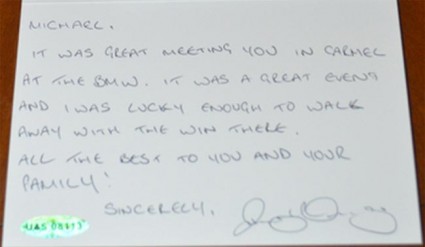 MICHAEL.
IT WAS GREAT MEETING YOU IN CARMEL
AT THE BMW. IT WAS A GREAT EVENT
AND I WAS LUCKY ENOUGH TO WALK
AWAY WITH THE WIN THERE.
ALL THE BEST TO YOU AND YOUR
FAMILY!
SINCERELY,